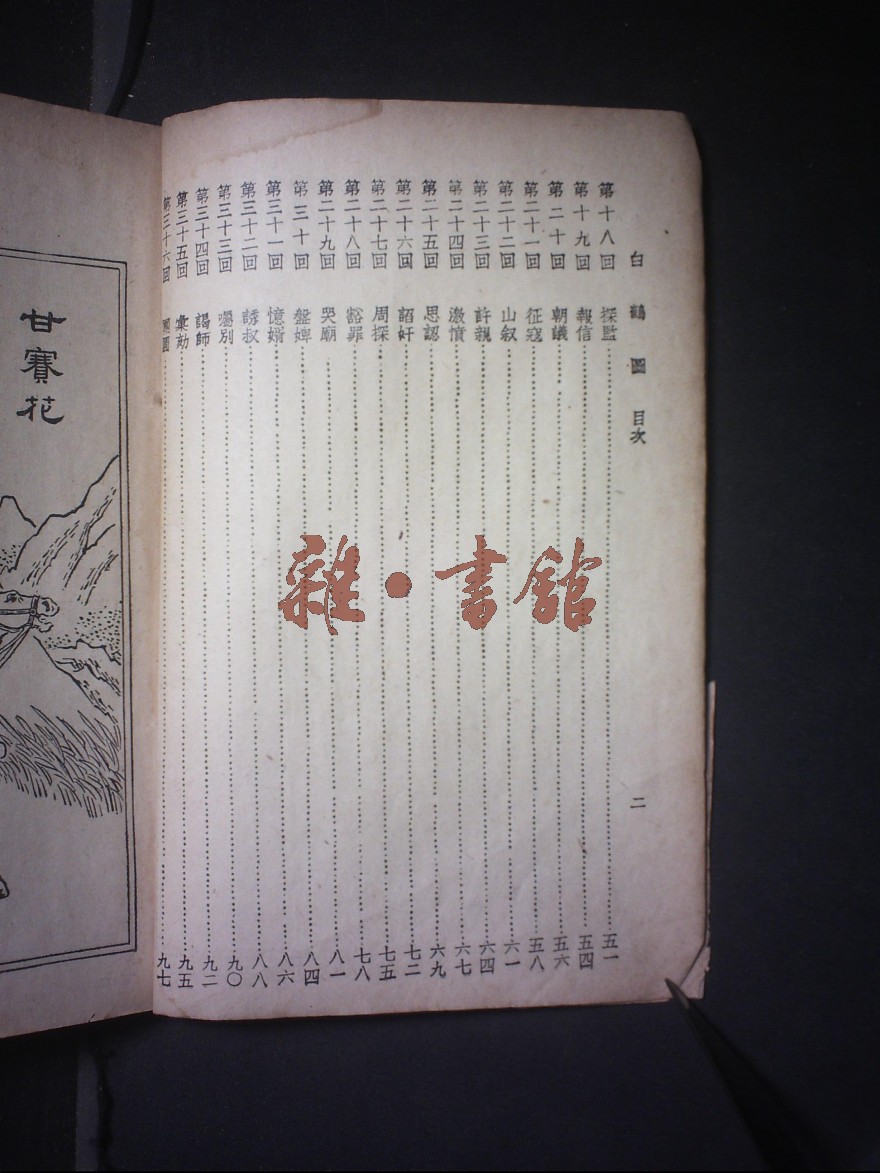 白鶴圖 目次 二
第十八回 探監 五一
第十九回 報信 五四
第二十回 朝議 五六
第二十一回 征寇 五八
第二十二回 山叙 六一
第二十三回 許親 六四
第二十四回 激憤 六七
第二十五回 思認 六九
第二十六回 詔奸 七二
第二十七回 周探 七五
第二十八回 豁罪 七八
第二十九回 哭廟 八一
第三十回 盤婢 八四
第三十一回 憶婿 八六
第三十二回 誘叔 八八
第三十三回 囑別 九〇
第三十四回 謁師 九二
第三十五回 彙劾 九五
第三十六回 圓 九七
甘賽花
雜·書館